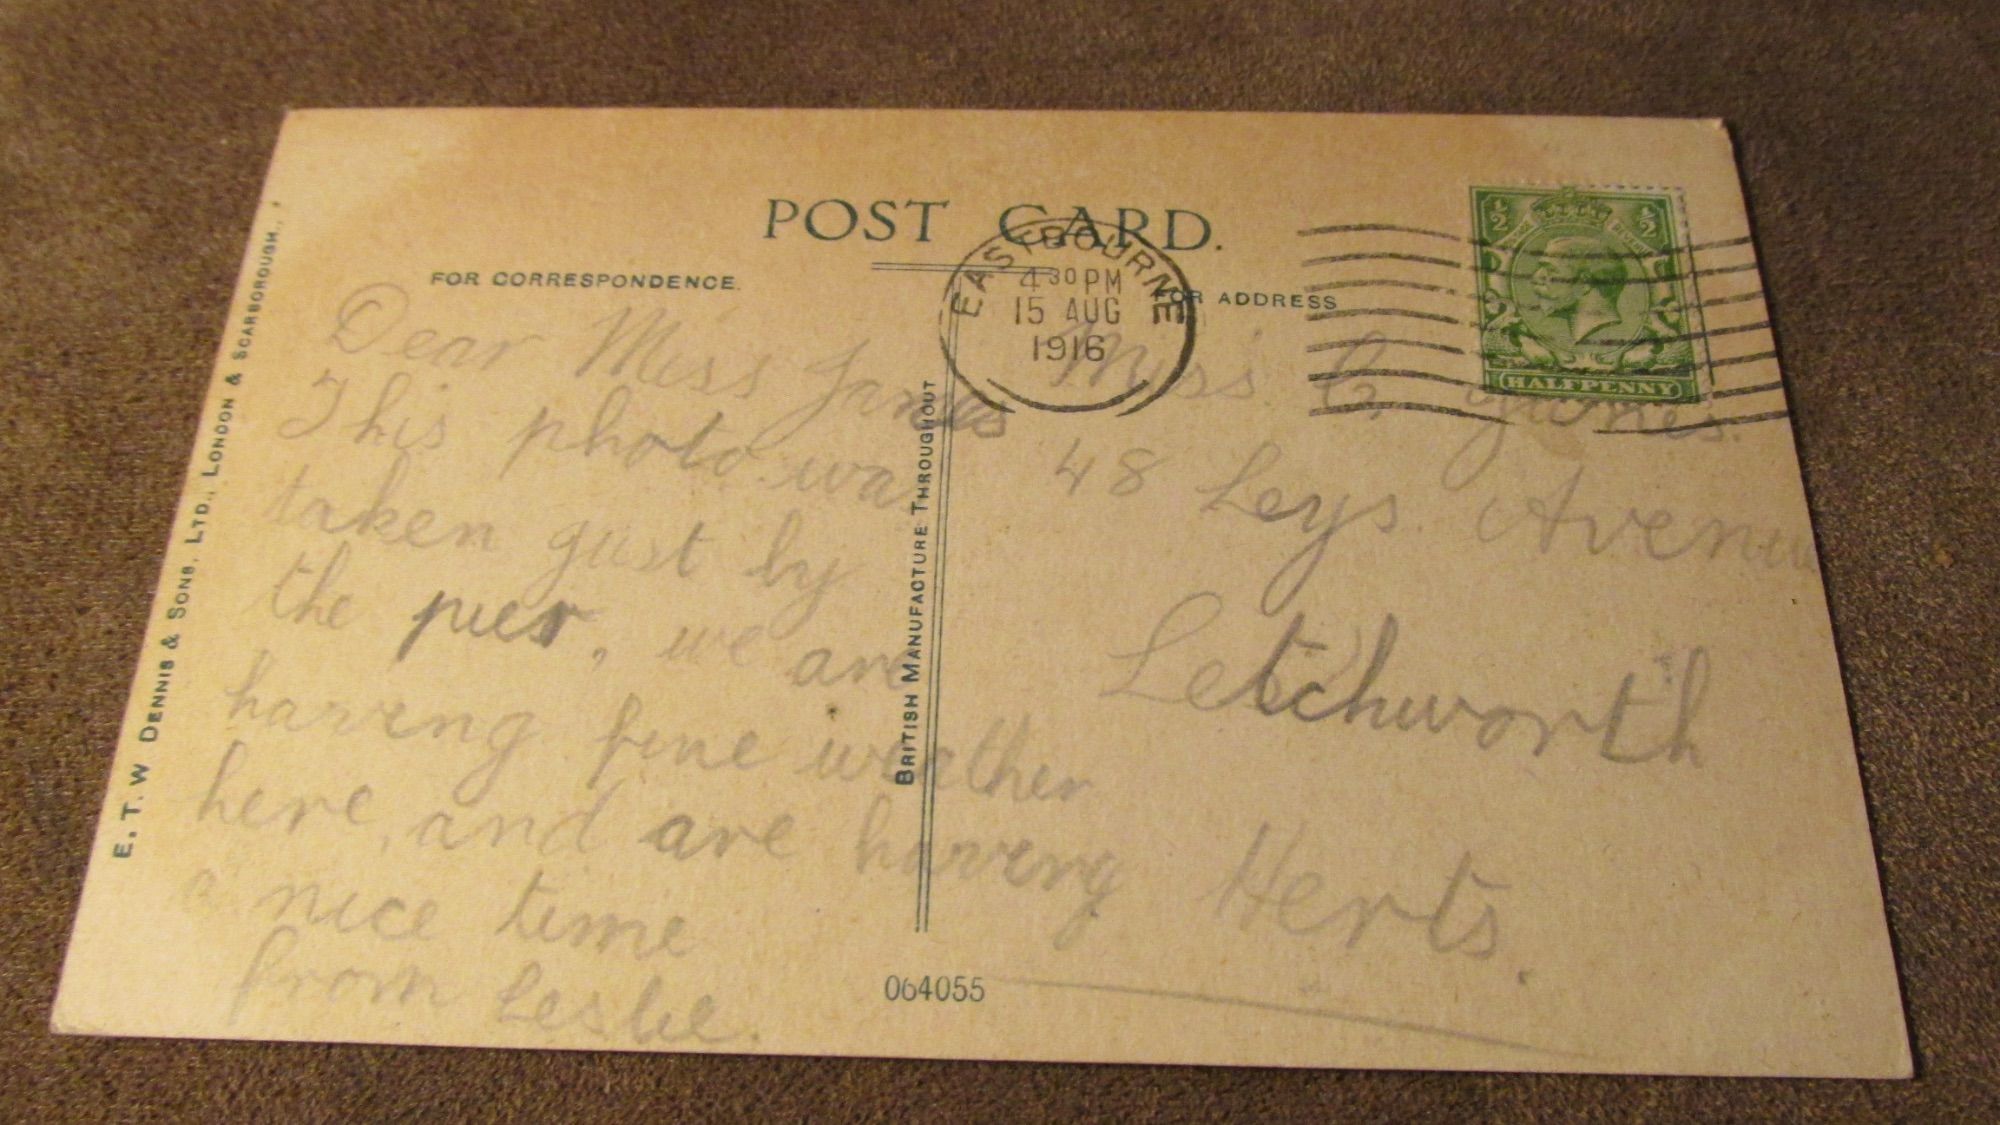 POST CARD.
FOR CORRESPONDENCE.
FOR ADDRESS
EASTBOURNE
4 30 PM
15 AUG
1916
½ ½
HALFPENNY
Dear Miss James
This photo was
taken gust by
the pier, we are
having fine weather
here, and are having
a nice time
from Leslie.
Miss G. James.
48 Leys Avenue
Letchworth
Herts.
E. T. W DENNIS & SONS, LTD., LONDON & SCARBOROUGH.
BRITISH MANUFACTURE THROUGHOUT
064055